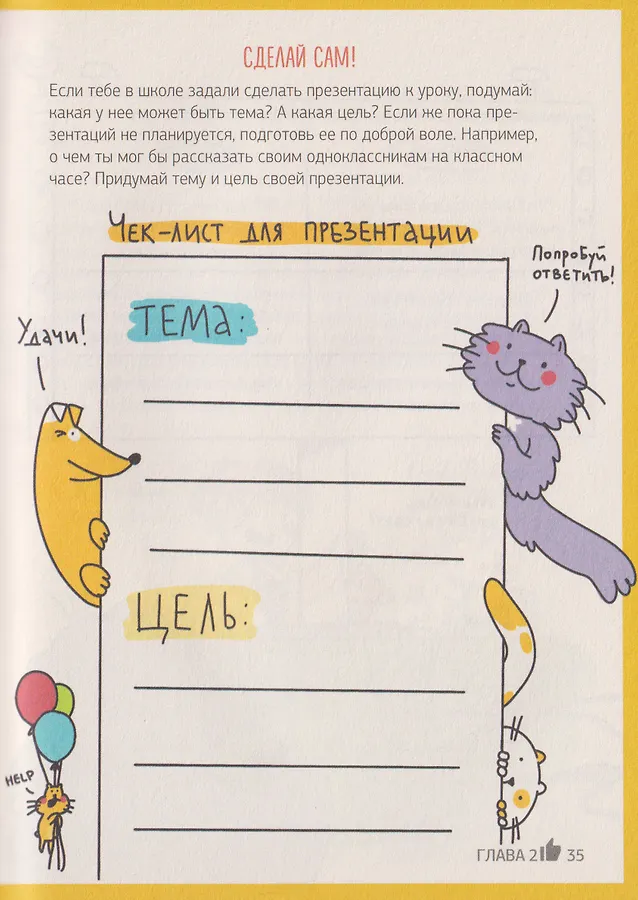 СДЕЛАЙ САМ!
Если тебе в школе задали сделать презентацию к уроку, подумай:
какая у нее может быть тема? А какая цель? Если же пока пре-
зентаций не планируется, подготовь ее по доброй воле. Например,
о чем ты мог бы рассказать своим одноклассникам на классном
часе? Придумай тему и цель своей презентации.
ЧЕК-ЛИСТ ДЛЯ ПРЕЗЕНТАЦИИ
Попробуй
ответить!
ТЕМА:
Удачи!
ЦЕЛЬ:
HELP
ГЛАВА 2 35